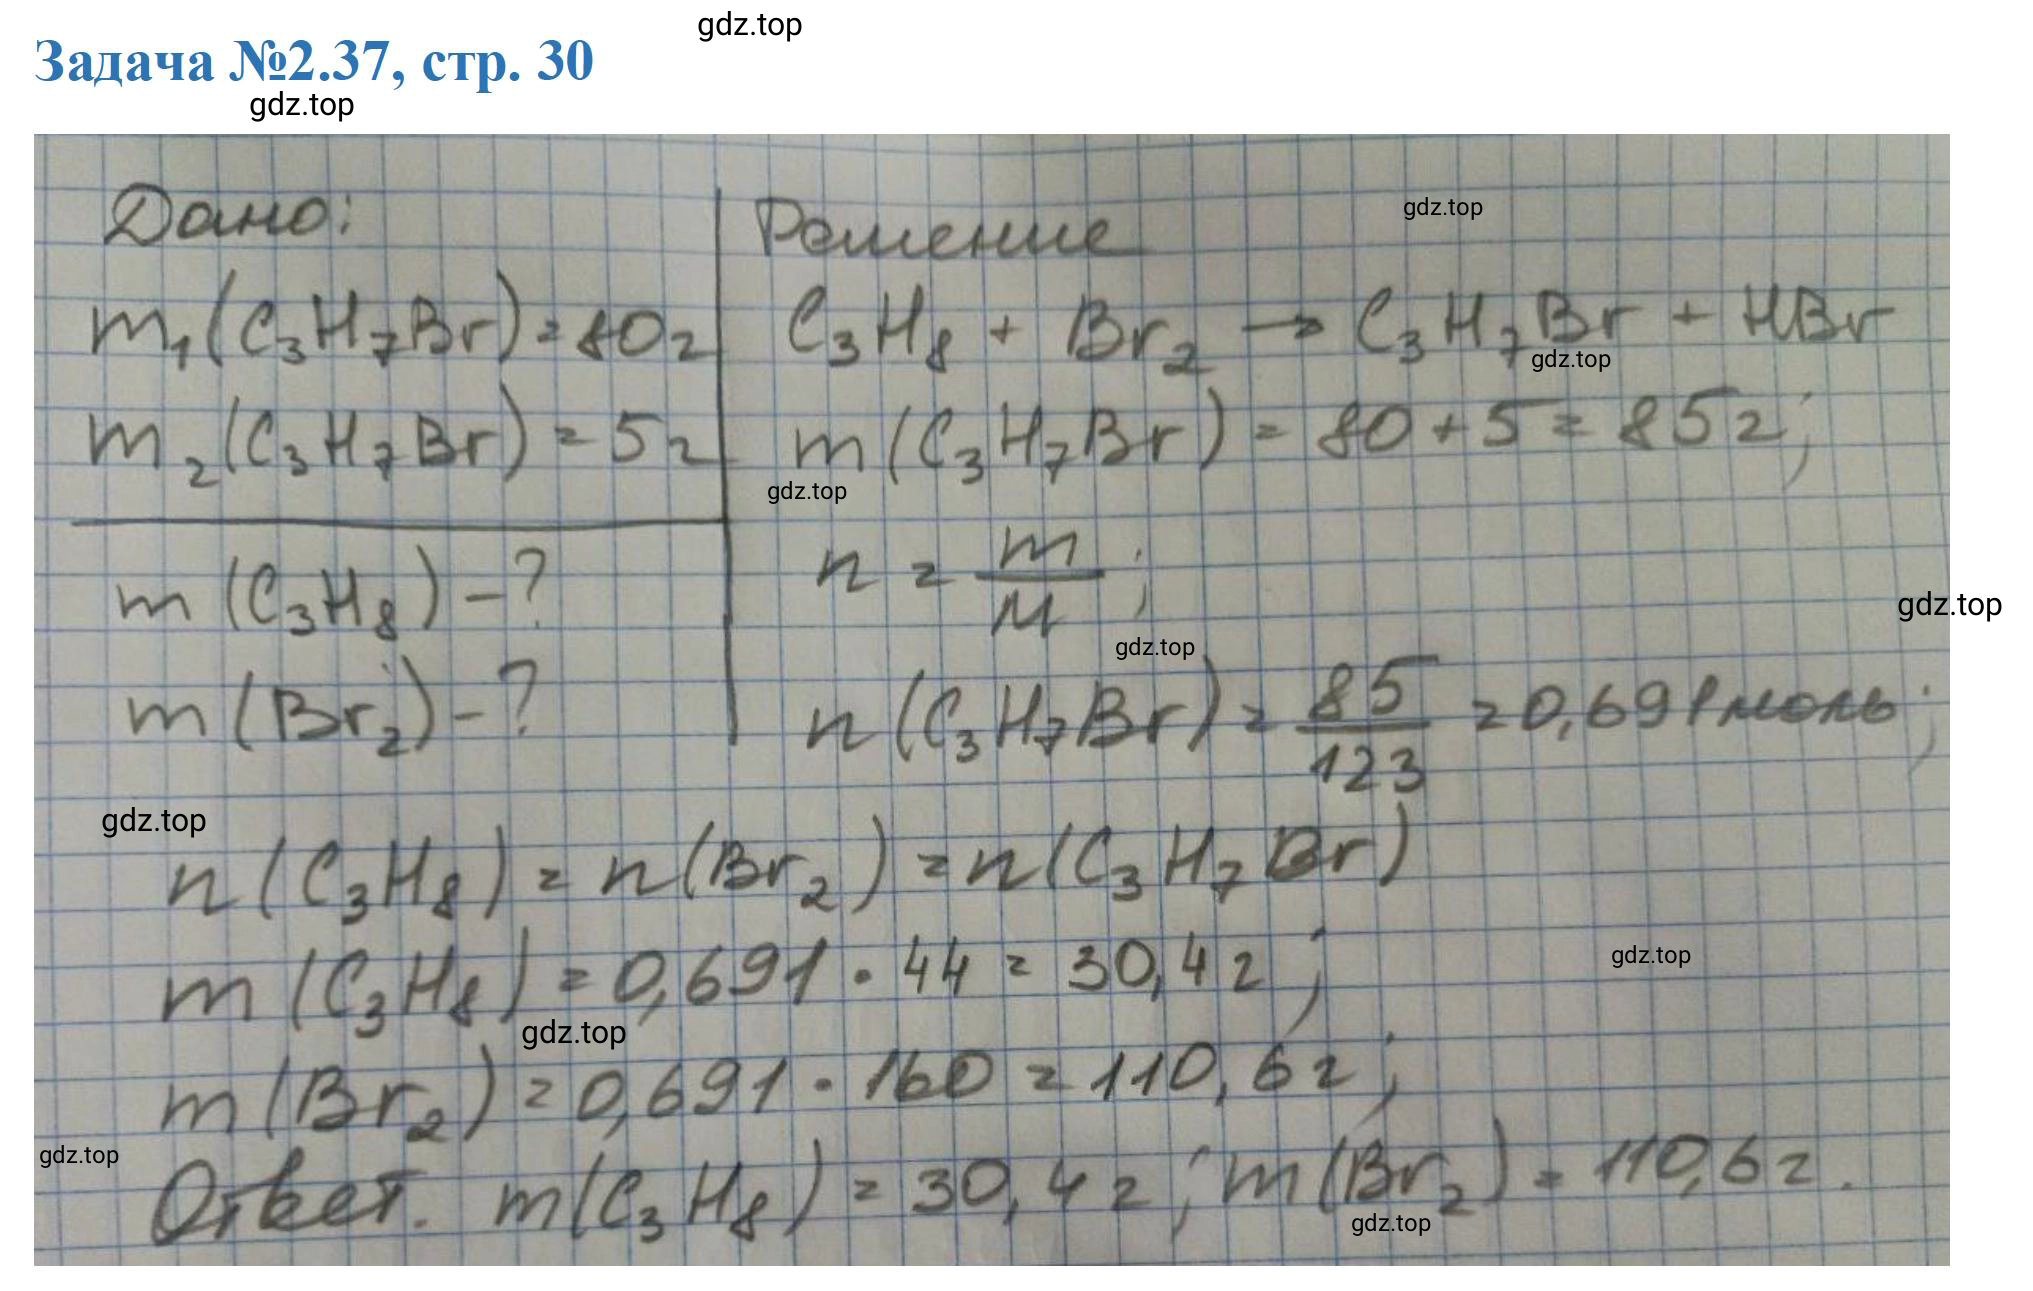 gdz.top
Задача №2.37, стр. 30
gdz.top
Дано:
m₁(C₃H₇Br) = 80 г
m₂(C₃H₇Br) = 5 г
m(C₃H₈) - ?
m(Br₂) - ?
Решение
gdz.top
C₃H₈ + Br₂ → C₃H₇Br + HBr
gdz.top
m(C₃H₇Br) = 80 + 5 = 85 г;
gdz.top
n = m/M;
gdz.top
gdz.top
n(C₃H₇Br) = 85/123 = 0,691 моль;
gdz.top
n(C₃H₈) = n(Br₂) = n(C₃H₇Br)
m(C₃H₈) = 0,691 · 44 = 30,4 г;
gdz.top
gdz.top
m(Br₂) = 0,691 · 160 = 110,6 г;
gdz.top
Ответ. m(C₃H₈) = 30,4 г; m(Br₂) = 110,6 г.
gdz.top